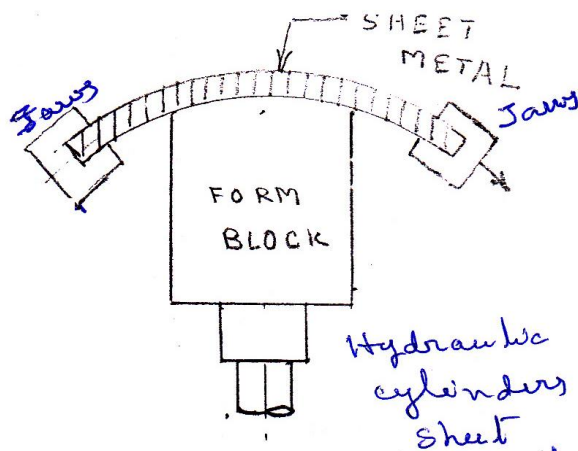 SHEET
METAL
Jaws
Jaws
FORM
BLOCK
Hydraulic
cylinders
sheet